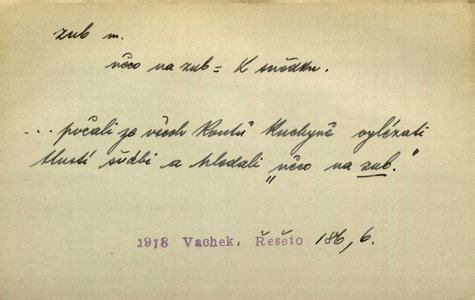 zub m.
něco na zub = k snědku.
... počali ze všech koutů kuchyně vylézati
tlustí švábi a hledali „něco na zub.“
1918 Vachek, Řešeto 186, 6.